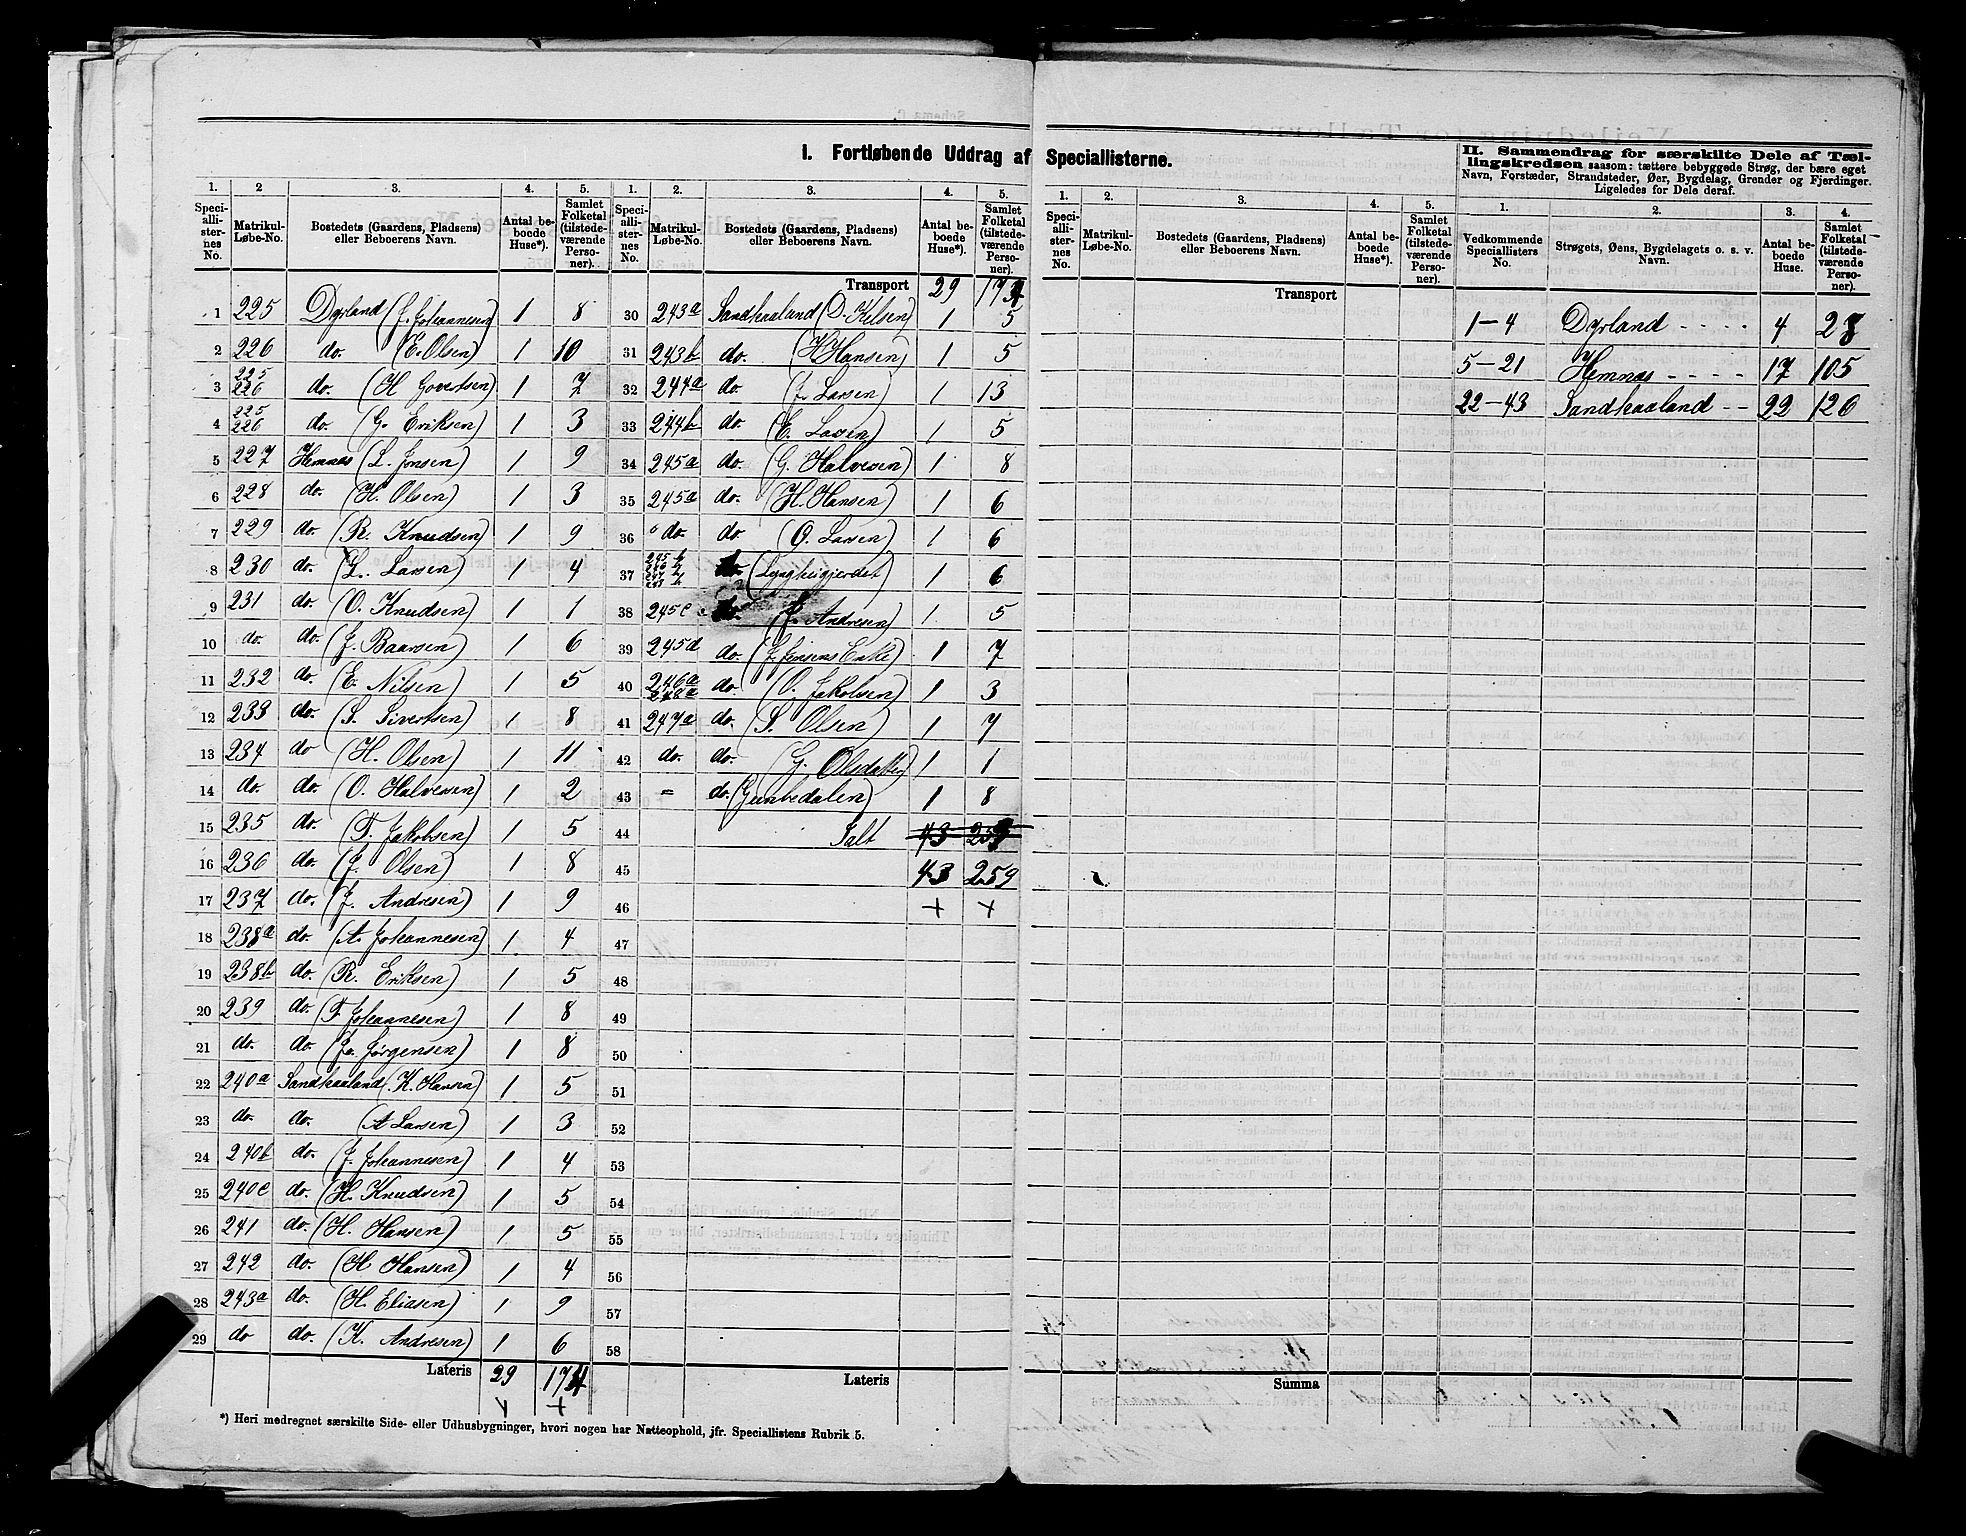 I. Fortløbende Uddrag af Speciallisterne.
1. 2 3. 4. 5.
Speciallisternes No. Matrikul-Løbe-No. Bostedets (Gaardens, Pladsens) eller Beboerens Navn. Antal beboede Huse*). Samlet Folketal (tilstedeværende Personer).
1 225 Dyrland (J. Johannesen) 1 8
2 226 do. (E. Olsen) 1 10
3 225 226 do. (H Govertsen) 1 7
4 225 226 do. (G. Eriksen) 1 3
5 227 Hemnæs (L. Jonsen) 1 9
6 228 do. (H. Olsen) 1 3
7 229 do. (R. Knudsen) 1 9
8 230 do. (L. Larsen) 1 4
9 231 do. (O. Knudsen) 1 1
10 do. do. (J. Baarsen) 1 6
11 232 do. (E. Nilsen) 1 5
12 233 do. (S. Sivertsen) 1 8
13 234 do (H. Olsen) 1 11
14 do. do. (O. Halvorsen) 1 2
15 235 do. (T. Jakobsen) 1 5
16 236 do. (J. Olsen) 1 8
17 237 do. (J. Andresen) 1 9
18 238a do. (A. Johannesen) 1. 4
19 238b do. (R. Eriksen) 1 5
20 239 do. (T. Johannesen) 1 8
21 do. do. (Jo. Jørgensen) 1 8
22 240a Sandkaaland (K. Hansen) 1 5
23 do. do. (A Larsen) 1 3
24 240b do. (J. Johannesen) 1 4
25 240c do. (H. Knudsen) 1 5
26 241 do. (H. Hansen) 1 5
27 242 do. (H Hansen) 1 4
28 243a do. (H. Eliasen) 1 9
29 do do. (K. Andresen) 1 6
Lateris 29 174
*) Heri medregnet særskilte Side- eller Udhusbygninger, hvori nogen har Natteophold, jfr. Speciallistens Rubrik 5.
1. 2. 3. 4. 5.
Speciallisternes No. Matrikul-Løbe-No. Bostedets (Gaardens, Pladsens) eller Beboerens Navn. Antal beboede Huse*). Samlet Folketal (tilstedeværende Personer).
Transport 29 174
30 243a Sandkaaland (D. Kilsen) 1 5
31 243b do. (H Hansen) 1 5
32 244a do. (J. Larsen) 1 13
33 244b do. (E. Larsen) 1 5
34 245a do. (G. Halvorsen) 1 8
35 245a do. (H. Hansen) 1 6
36 do. do (O. Larsen) 1 6
37 do (Lyngheigjerdet) 1 6
38 245c do. (J. Andresen) 1. 5
39 245d do. (J. Jensens Enke) 1 7
40 246a 248a do. (O. Jakobsen) 1 3
41 247a do. (S. Olsen) 1 7
42 do. do. (G. Olsdatter) 1 1
43 = do. (Grinbedalen) 1 8
44 Ialt 43 253
45 43 259
46 + +
47
48
49
50
51
52
53
54
55
56
57
58
Lateris
1. 2. 3. 4. 5.
Speciallisternes No. Matrikul-Løbe-No. Bostedets (Gaardens, Pladsens) eller Beboerens Navn. Antal beboede Huse*). Samlet Folketal (tilstedeværende Personer).
Transport
Summa
II. Sammendrag for særskilte Dele af Tællingskredsen saasom: tættere bebyggede Strøg, der bære eget Navn, Forstæder, Strandsteder, Øer, Bygdelag, Grender og Fjerdinger. Ligeledes for Dele deraf.
1. 2. 3. 4.
Vedkommende Speciallisters No. Strøgets, Øens, Bygdelagets o. s. v. Navn. Antal beboede Huse. Samlet Folketal (tilstedeværende Personer).
1-4 Dyrland - - - - 4 28
5-21 Hemnæs - - - - 17 105
22-43 Sandkaaland - - 22 126